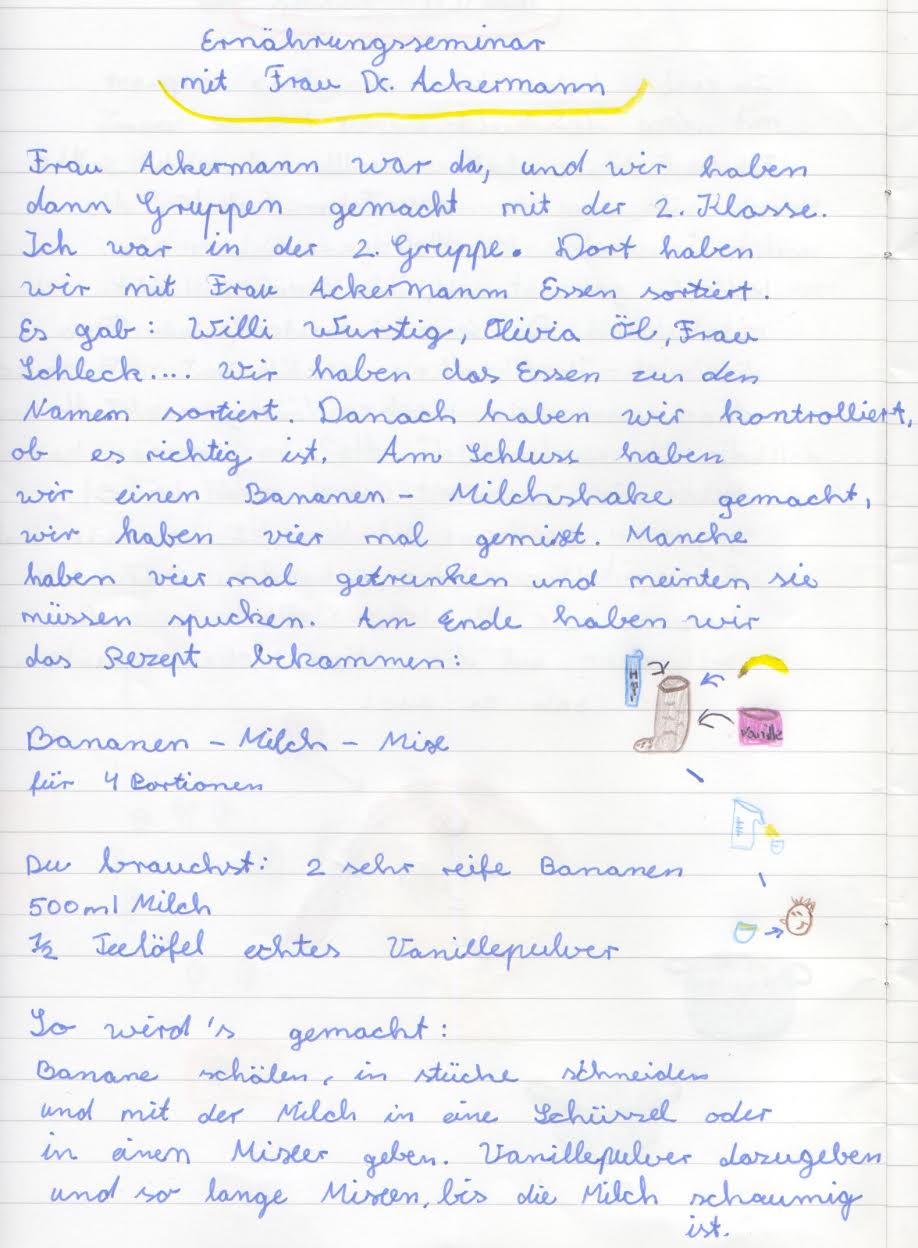 Ernährungsseminar
mit Frau Dr. Ackermann
Frau Ackermann war da, und wir haben
dann Gruppen gemacht mit der 2. Klasse.
Ich war in der 2. Gruppe. Dort haben
wir mit Frau Ackermann Essen sortiert.
Es gab: Willi Wurstig, Olivia Öl, Frau
Schleck.... Wir haben das Essen zu den
Namen sortiert. Danach haben wir kontrolliert,
ob es richtig ist. Am Schluss haben
wir einen Bananen - Milchshake gemacht,
wir haben vier mal gemixt. Manche
haben vier mal getrunken und meinten sie
müssen spucken. Am Ende haben wir
das Rezept bekommen:
Vanille
Bananen - Milch - Mix
für 4 Portionen
Du brauchst: 2 sehr reife Bananen
500ml Milch
1/2 Teelöfel echtes Vanillepulver
So wird's gemacht:
Banane schälen, in stücke schneiden
und mit der Milch in eine Schüssel oder
in einen Mixer geben. Vanillepulver dazugeben
und so lange Mixen, bis die Milch schaumig
ist.